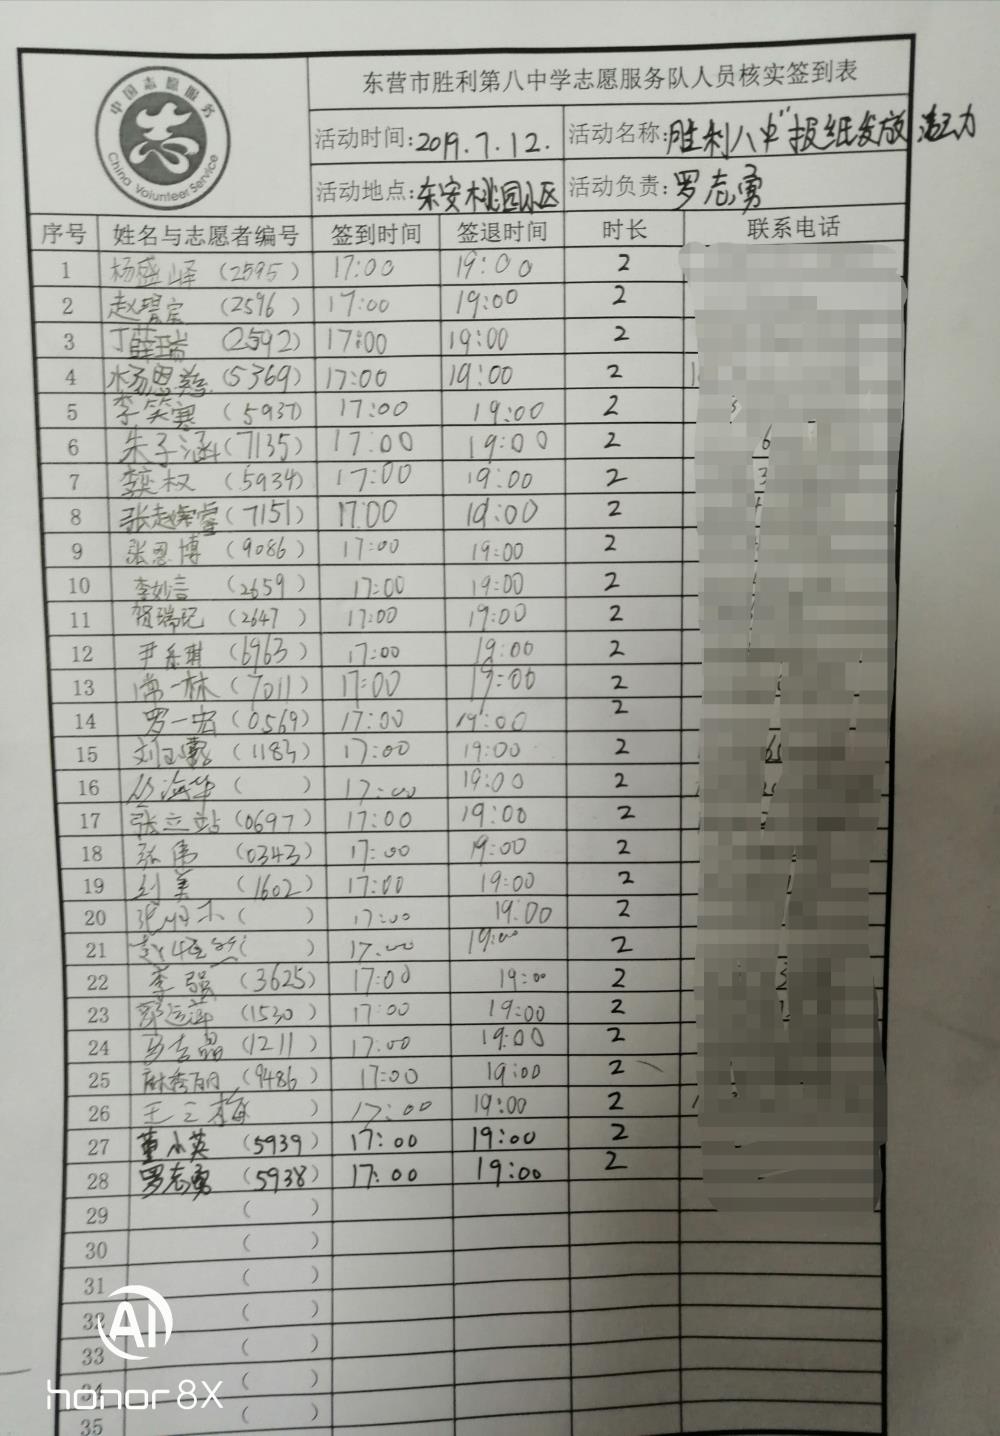 东营市胜利第八中学志愿服务队人员核实签到表
中国志愿服务
志
China Volunteer Service
活动时间:2019.7.12. 活动名称:胜利八中"报纸发放活动
活动地点:东安桃园小区 活动负责:罗志勇
序号 姓名与志愿者编号 签到时间 签退时间 时长 联系电话
1 杨盛峄 (2595) 17:00 19:00 2
2 (2596) 17:00 19:00 2
3 丁薛瑞 (2592) 17:00 19:00 2
4 (5369) 17:00 19:00 2
5 李笑寒 (5937) 17:00 19:00 2
6 朱子涵 (7135) 17:00 19:00 2
7 权 (5934) 17:00 19:00 2
8 张赵 (7151) 17:00 19:00 2
9 张恩博 (9086) 17:00 19:00 2
10 李妙言 (2659) 17:00 19:00 2
11 贺瑞 (2647) 17:00 19:00 2
12 尹 琪 (6963) 17:00 19:00 2
13 常一林 (7011) 17:00 19:00 2
14 罗一宏 (0569) 17:00 19:00 2
15 刘 (1183) 17:00 19:00 2
16 ( ) 17:00 19:00 2
17 张立站 (0697) 17:00 19:00 2
18 张伟 (0343) 17:00 19:00 2
19 刘美 (1602) 17:00 19:00 2
20 ( ) 17:00 19:00 2
21 ( ) 17:00 19:00 2
22 李强 (3625) 17:00 19:00 2
23 (1530) 17:00 19:00 2
24 晶 (1211) 17:00 19:00 2
25 麻秀丽 (9486) 17:00 19:00 2
26 王三梅 ) 17:00 19:00 2
27 董小英 (5939) 17:00 19:00 2
28 罗志勇 (5938) 17:00 19:00 2
29 ( )
30 ( )
31 ( )
32 ( )
33 ( )
34 ( )
35 ( )
AI
honor 8X